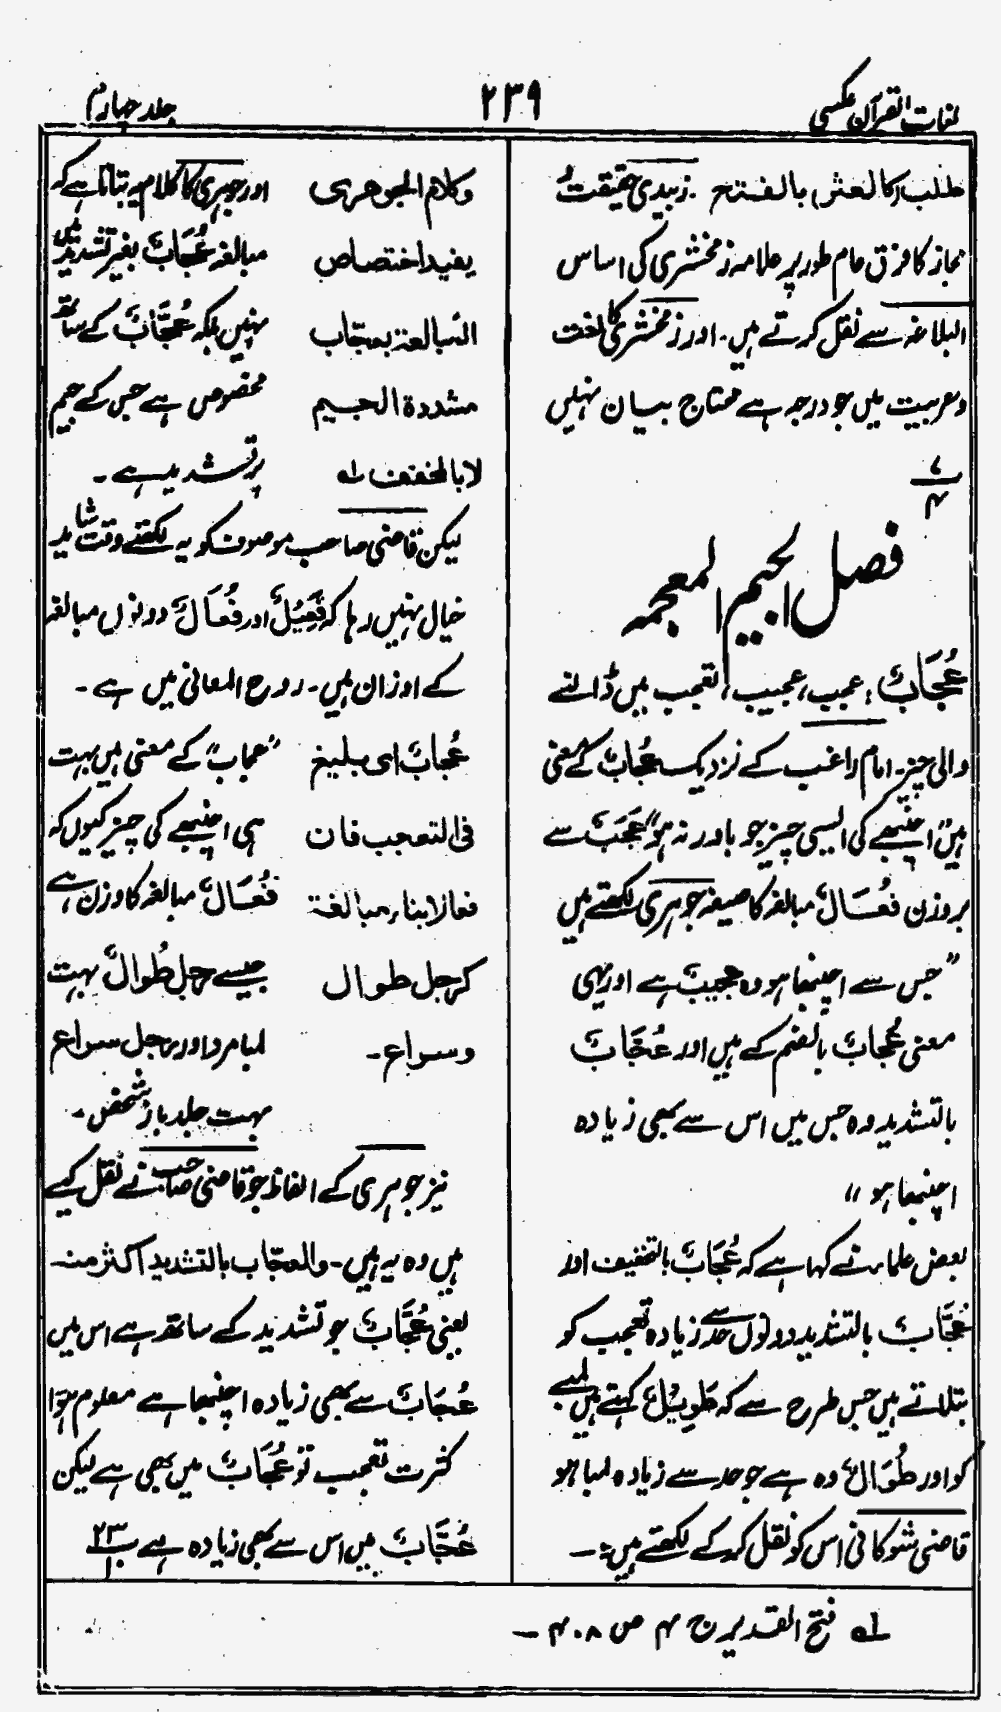 لغات القرآن عکسی
۲۳۹
جلد چہارم
طلب (کالعش) بالفتح. زبیدی حقیقت و
مجاز کا فرق عام طور پر علامہ زمخشری کی اساس
البلاغہ سے نقل کرتے ہیں۔ اور زمخشری کا لغت
و عربیت میں جو درجہ ہے محتاج بیان نہیں
۷
۴
فصل الجیم المعجمہ
عُجَابٌ: عجیب، عجیب، تعجب میں ڈالنے
والی چیز۔ امام راغب کے نزدیک عُجَابٌ کے معنی
ہیں "اچنبھے کی ایسی چیز جو باور نہ ہو" عَجَبٌ سے
بروزن فُعَالٌ مبالغہ کا صیغہ جوہری لکھتے ہیں
"جس سے اچنبھا ہو وہ عجیبٌ ہے اور یہی
معنی عُجابٌ بالضم کے ہیں اور عُجَّابٌ
بالتشدید وہ جس میں اس سے بھی زیادہ
اچنبھا ہو"
بعض علماء نے کہا ہے کہ عُجَابٌ بالتخفیف اور
عُجَّابٌ بالتشدید دونوں حد سے زیادہ تعجب کو
بتلاتے ہیں جس طرح سے کہ طَوِیلٌ کہتے ہیں لمبے
کو اور طُوَالٌ وہ ہے جو حد سے زیادہ لمبا ہو
قاضی شوکانی اس کو نقل کر کے لکھتے ہیں:۔
وکلام الجوھری
یفید اختصاص
المبالغۃ بعجّاب
مشددۃ الجیم
لا بالمخفف لہ
اور جوہری کا کلام یہ بتاتا ہے کہ
مبالغہ عُجَابٌ بغیر تشدید میں
نہیں بلکہ عُجَّابٌ کے ساتھ
مخصوص ہے جس کے جیم
پر تشدید ہے۔
لیکن قاضی صاحب موصوف کو یہ لکھتے وقت شاید
خیال نہیں رہا کہ فَعِیْلٌ اور فُعَالٌ دونوں مبالغہ
کے اوزان ہیں۔ روح المعانی میں ہے۔
عُجابٌ ای بلیغ
فی التعجب فان
فعالا بناء مبالغۃ
کرجل طوال
وسراع۔
"عجاب" کے معنی ہیں بہت
ہی اچنبھے کی چیز کیوں کہ
فُعَالٌ مبالغہ کا وزن ہے
جیسے رجل طُوالٌ بہت
لمبا مرد اور رجل سراع
بہت جلد باز شخص۔
نیز جوہری کے الفاظ جو قاضی صاحب نے نقل کیے
ہیں وہ یہ ہیں۔ والعجّاب بالتشدید اکثر منہ
یعنی عُجَّابٌ جو تشدید کے ساتھ ہے اس میں
عُجَابٌ سے بھی زیادہ اچنبھا ہے معلوم ہوا
کثرت تعجب تو عُجَابٌ میں بھی ہے لیکن
عُجَّابٌ میں اس سے بھی زیادہ ہے ۲۳
۱
لہ فتح القدیر ج ۴ ص ۴۰۸۔